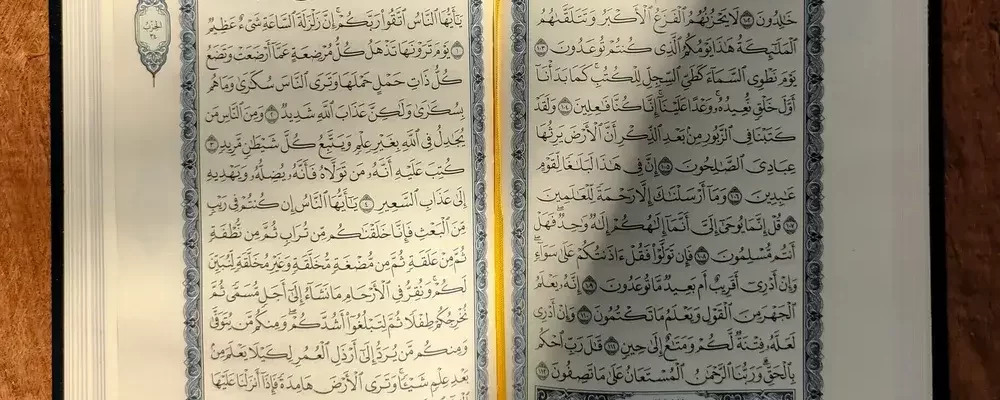 خَٰلِدُونَ ١٠٢ لَا يَحْزُنُهُمُ ٱلْفَزَعُ ٱلْأَكْبَرُ وَتَتَلَقَّىٰهُمُ
ٱلْمَلَٰٓئِكَةُ هَٰذَا يَوْمُكُمُ ٱلَّذِى كُنتُمْ تُوعَدُونَ ١٠٣
يَوْمَ نَطْوِى ٱلسَّمَآءَ كَطَىِّ ٱلسِّجِلِّ لِلْكُتُبِ ۚ كَمَا بَدَأْنَآ
أَوَّلَ خَلْقٍ نُّعِيدُهُۥ ۚ وَعْدًا عَلَيْنَآ ۚ إِنَّا كُنَّا فَٰعِلِينَ ١٠٤ وَلَقَدْ
كَتَبْنَا فِى ٱلزَّبُورِ مِنۢ بَعْدِ ٱلذِّكْرِ أَنَّ ٱلْأَرْضَ يَرِثُهَا
عِبَادِىَ ٱلصَّٰلِحُونَ ١٠٥ إِنَّ فِى هَٰذَا لَبَلَٰغًا لِّقَوْمٍ
عَٰبِدِينَ ١٠٦ وَمَآ أَرْسَلْنَٰكَ إِلَّا رَحْمَةً لِّلْعَٰلَمِينَ
١٠٧ قُلْ إِنَّمَا يُوحَىٰٓ إِلَىَّ أَنَّمَآ إِلَٰهُكُمْ إِلَٰهٌ وَٰحِدٌ ۖ فَهَلْ
أَنتُم مُّسْلِمُونَ ١٠٨ فَإِن تَوَلَّوْا۟ فَقُلْ ءَاذَنتُكُمْ عَلَىٰ سَوَآءٍ ۖ
وَإِنْ أَدْرِىٓ أَقَرِيبٌ أَم بَعِيدٌ مَّا تُوعَدُونَ ١٠٩ إِنَّهُۥ يَعْلَمُ
ٱلْجَهْرَ مِنَ ٱلْقَوْلِ وَيَعْلَمُ مَا تَكْتُمُونَ ١١٠ وَإِنْ أَدْرِى
لَعَلَّهُۥ فِتْنَةٌ لَّكُمْ وَمَتَٰعٌ إِلَىٰ حِينٍ ١١١ قَٰلَ رَبِّ ٱحْكُم
بِٱلْحَقِّ ۗ وَرَبُّنَا ٱلرَّحْمَٰنُ ٱلْمُسْتَعَانُ عَلَىٰ مَا تَصِفُونَ ١١٢
يَٰٓأَيُّهَا ٱلنَّاسُ ٱتَّقُوا۟ رَبَّكُمْ ۚ إِنَّ زَلْزَلَةَ ٱلسَّاعَةِ شَىْءٌ عَظِيمٌ
١ يَوْمَ تَرَوْنَهَا تَذْهَلُ كُلُّ مُرْضِعَةٍ عَمَّآ أَرْضَعَتْ وَتَضَعُ
كُلُّ ذَاتِ حَمْلٍ حَمْلَهَا وَتَرَى ٱلنَّاسَ سُكَٰرَىٰ وَمَا هُم
بِسُكَٰرَىٰ وَلَٰكِنَّ عَذَابَ ٱللَّهِ شَدِيدٌ ٢ وَمِنَ ٱلنَّاسِ مَن
يُجَٰدِلُ فِى ٱللَّهِ بِغَيْرِ عِلْمٍ وَيَتَّبِعُ كُلَّ شَيْطَٰنٍ مَّرِيدٍ ٣
كُتِبَ عَلَيْهِ أَنَّهُۥ مَن تَوَلَّاهُ فَأَنَّهُۥ يُضِلُّهُۥ وَيَهْدِيهِ
إِلَىٰ عَذَابِ ٱلسَّعِيرِ ٤ يَٰٓأَيُّهَا ٱلنَّاسُ إِن كُنتُمْ فِى رَيْبٍ
مِّنَ ٱلْبَعْثِ فَإِنَّا خَلَقْنَٰكُم مِّن تُرَابٍ ثُمَّ مِن نُّطْفَةٍ
ثُمَّ مِنْ عَلَقَةٍ ثُمَّ مِن مُّضْغَةٍ مُّخَلَّقَةٍ وَغَيْرِ مُخَلَّقَةٍ لِّنُبَيِّنَ
لَكُمْ ۚ وَنُقِرُّ فِى ٱلْأَرْحَامِ مَا نَشَآءُ إِلَىٰٓ أَجَلٍ مُّسَمًّى ثُمَّ
نُخْرِجُكُمْ طِفْلًا ثُمَّ لِتَبْلُغُوٓا۟ أَشُدَّكُمْ ۖ وَمِنكُم مَّن يُتَوَفَّىٰ
وَمِنكُم مَّن يُرَدُّ إِلَىٰٓ أَرْذَلِ ٱلْعُمُرِ لِكَيْلَا يَعْلَمَ مِنۢ
بَعْدِ عِلْمٍ شَيْـًٔا ۚ وَتَرَى ٱلْأَرْضَ هَامِدَةً فَإِذَآ أَنزَلْنَا عَلَيْهَا
الحزب
٣٤